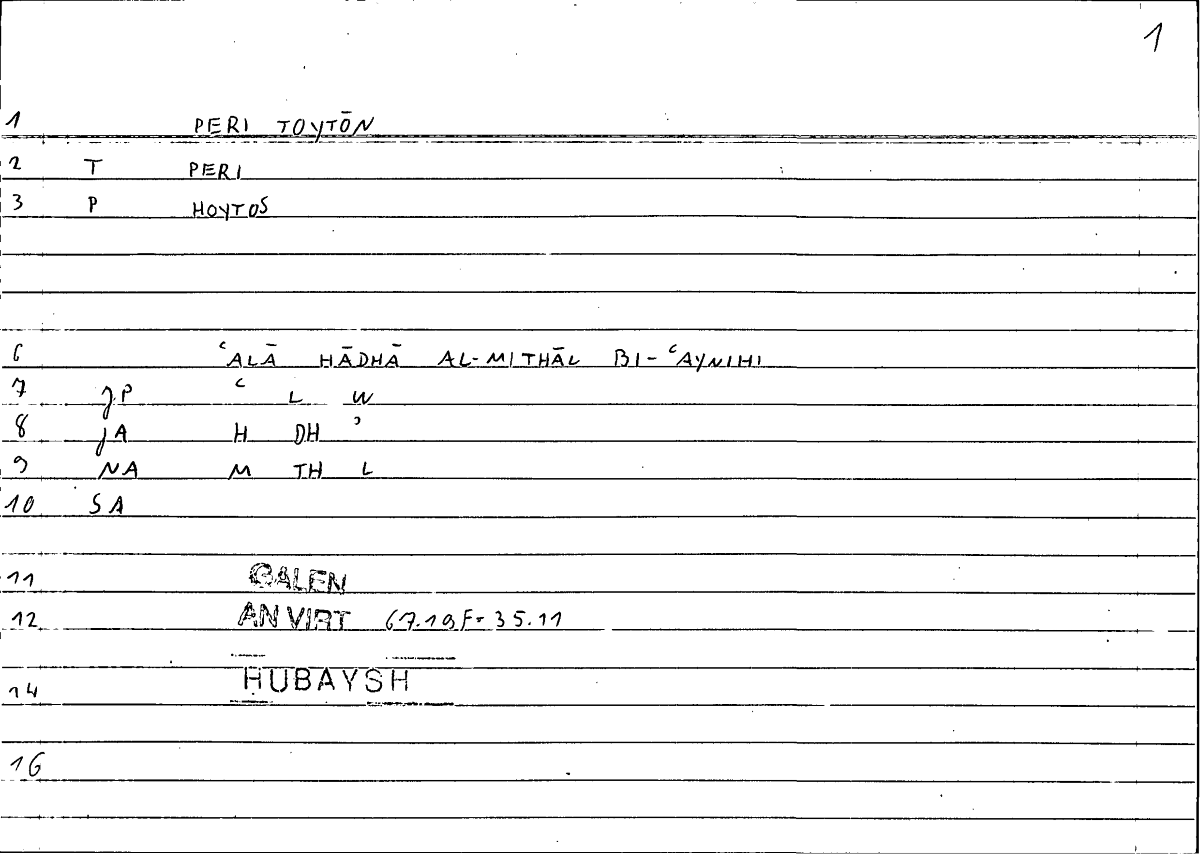 1
1 PERI TOYTŌN
2 T PERI
3 P HOYTOS
6 ʿALĀ HĀDHĀ AL-MITHĀL BI-ʿAYNIHI
7 JP ʿ L W
8 JA H DH ʾ
9 NA M TH L
10 SA
11 GALEN
12 AN VIRT 67.19F-35.11
14 HUBAYSH
16